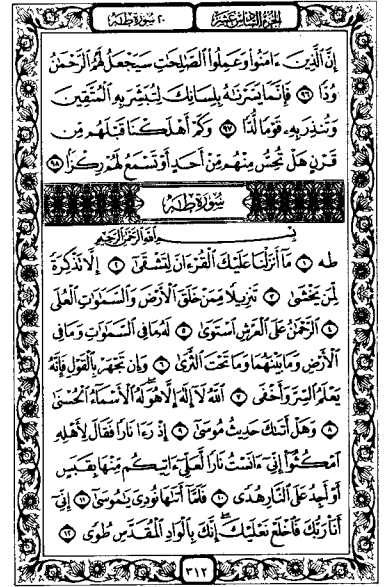 الجزء السادس عشر ٢٠ سورة طه
إِنَّ ٱلَّذِينَ ءَامَنُواْ وَعَمِلُواْ ٱلصَّٰلِحَٰتِ سَيَجْعَلُ لَهُمُ ٱلرَّحْمَٰنُ
وُدًّا ٩٦ فَإِنَّمَا يَسَّرْنَٰهُ بِلِسَانِكَ لِتُبَشِّرَ بِهِ ٱلْمُتَّقِينَ
وَتُنذِرَ بِهِۦ قَوْمًا لُّدًّا ٩٧ وَكَمْ أَهْلَكْنَا قَبْلَهُم مِّن
قَرْنٍ هَلْ تُحِسُّ مِنْهُم مِّنْ أَحَدٍ أَوْ تَسْمَعُ لَهُمْ رِكْزًا ٩٨
سورة طه
بِسْمِ ٱللَّهِ ٱلرَّحْمَٰنِ ٱلرَّحِيمِ
طه ١ مَآ أَنزَلْنَا عَلَيْكَ ٱلْقُرْءَانَ لِتَشْقَىٰٓ ٢ إِلَّا تَذْكِرَةً
لِّمَن يَخْشَىٰ ٣ تَنزِيلًا مِّمَّنْ خَلَقَ ٱلْأَرْضَ وَٱلسَّمَٰوَٰتِ ٱلْعُلَى
٤ ٱلرَّحْمَٰنُ عَلَى ٱلْعَرْشِ ٱسْتَوَىٰ ٥ لَهُۥ مَا فِى ٱلسَّمَٰوَٰتِ وَمَا فِى
ٱلْأَرْضِ وَمَا بَيْنَهُمَا وَمَا تَحْتَ ٱلثَّرَىٰ ٦ وَإِن تَجْهَرْ بِٱلْقَوْلِ فَإِنَّهُۥ
يَعْلَمُ ٱلسِّرَّ وَأَخْفَى ٧ ٱللَّهُ لَآ إِلَٰهَ إِلَّا هُوَ لَهُ ٱلْأَسْمَآءُ ٱلْحُسْنَىٰ
٨ وَهَلْ أَتَىٰكَ حَدِيثُ مُوسَىٰٓ ٩ إِذْ رَءَا نَارًا فَقَالَ لِأَهْلِهِ
ٱمْكُثُوٓاْ إِنِّىٓ ءَانَسْتُ نَارًا لَّعَلِّىٓ ءَاتِيكُم مِّنْهَا بِقَبَسٍ
أَوْ أَجِدُ عَلَى ٱلنَّارِ هُدًى ١٠ فَلَمَّآ أَتَىٰهَا نُودِىَ يَٰمُوسَىٰٓ ١١ إِنِّىٓ
أَنَا۠ رَبُّكَ فَٱخْلَعْ نَعْلَيْكَ إِنَّكَ بِٱلْوَادِ ٱلْمُقَدَّسِ طُوًى ١٢
٣١٢